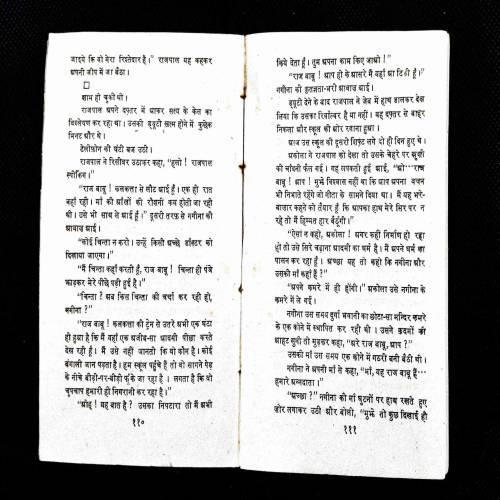 जाइये कि वो मेरा रिश्तेदार है।” राजपाल यह कहकर
अपनी जीप में जा बैठा।
शाम हो चुकी थी।
राजपाल अपने दफ़्तर में आकर सत्य के केस का
विश्लेषण कर रहा था। उसकी ड्यूटी खत्म होने में कुछेक
मिनट और थे।
टेलीफ़ोन की घंटी बज उठी।
राजपाल ने रिसीवर उठाकर कहा, “हलो! राजपाल
स्पीकिंग।”
“राज बाबू! कलकत्ता से लौट आई हूँ। एक ही रात
वहाँ रही। माँ की आँखों की रौशनी कम होती जा रही
थी। उसे भी साथ ले आई हूँ।” दूसरी तरफ़ से नगीना की
आवाज़ आई।
“कोई चिन्ता न करो। उन्हें किसी अच्छे डॉक्टर को
दिखाया जाएगा।”
“मैं चिन्ता कहाँ करती हूँ, राज बाबू! चिन्ता ही पंजे
फाड़कर मेरे पीछे पड़ी हुई है।”
“चिन्ता? अब किस चिन्ता की चर्चा कर रही हो,
नगीना?”
“राज बाबू! कलकत्ता की ट्रेन से उतरे अभी एक घंटा
ही हुआ है कि मैं यहाँ एक अजीब-सा आदमी पीछा करते
देख रही हूँ। मैं उसे नहीं जानती कि वो कौन है। कोई
बंगाली जान पड़ता है। हम स्कूल पहुँचे हैं तो वो सामने पेड़
के नीचे बीड़ी-पर-बीड़ी फूंके जा रहा है। लगता है कि वो
चुपचाप हमारी ही निगरानी कर रहा है।”
“ओह! यह बात है? उसका निपटारा तो मैं अभी
११०
किये देता हूँ। तुम अपना काम किए जाओ!”
“राज बाबू! आप ही के आसरे मैं यहाँ आ टिकी हूँ।”
नगीना की कृतज्ञता-भरी आवाज़ आई।
ड्यूटी देने के बाद राजपाल ने जेब में हाथ डालकर देख
लिया कि उसका रिवॉल्वर है या नहीं। वह दफ़्तर से बाहर
निकला और स्कूल की ओर रवाना हुआ।
आज उस स्कूल की दूसरी शिफ़्ट लगे दो ही दिन हुए थे।
प्रकोला ने राजपाल को देखा तो उसके चेहरे पर खुशी
की चाँदनी फैल गई। वह लपकती हुई आई, “ओ···राज
बाबू! आप! मुझे विश्वास नहीं था कि आप अपना वचन
भी निभाते रहेंगे जो गीता के सामने दिया था। मैं यह भरे-
बाज़ार कहने को तैयार हूँ कि आपका हाथ मेरे सिर पर न
रहे तो मैं हिम्मत हार बैठूंगी।”
“ऐसा न कहो, प्रकोला! अगर कहीं निर्माण हो रहा
हो तो उसे सिरे चढ़ाना आदमी का धर्म है। मैं अपने धर्म का
पालन कर रहा हूँ। अच्छा यह तो कहो कि नगीना और
उसकी माँ कहाँ हैं?”
“अपने कमरे में ही होंगी।” प्रकोला उसे नगीना के
कमरे में ले गई।
नगीना उस समय दुर्गा भवानी का छोटा-सा मन्दिर कमरे
के एक कोने में स्थापित कर रही थी। उसने क़दमों की
आहट सुनी तो मुड़कर कहा, “अरे राज बाबू, आप?”
उसकी माँ उस समय एक कोने में गठरी बनी बैठी थी।
नगीना ने अपनी माँ से कहा, “माँ, यह राज बाबू हैं···
हमारे अन्नदाता।”
“अच्छा?” नगीना की माँ घुटनों पर हाथ रखते हुए
ज़ोर लगाकर उठी और बोली, “मुझे तो कुछ दिखाई ही
१११